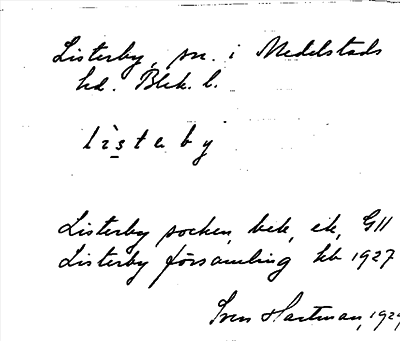 Listerby, sn. i Medelstads
hd. Blek. l.
lìsteby
Listerby socken, bek, ek, GH
Listerby församling kb 1927
Sven Hartman, 1929